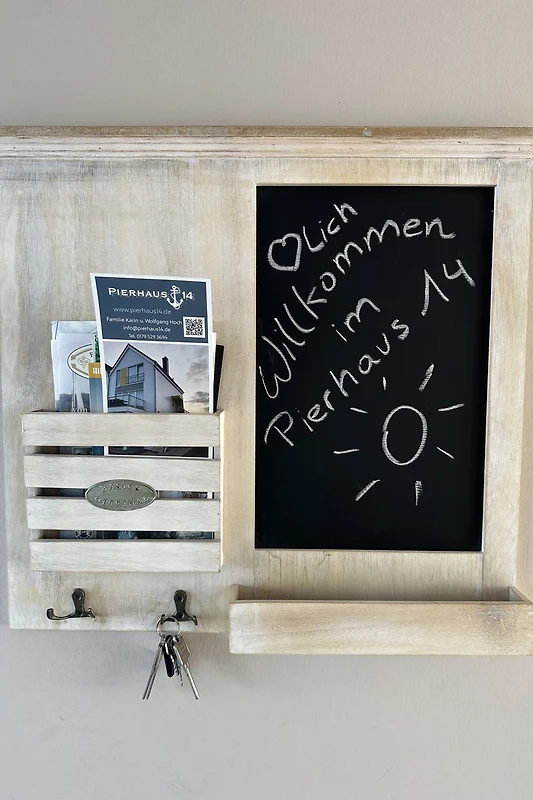 ♡Lich
Willkommen
im
Pierhaus 14
PIERHAUS 14
www.pierhaus14.de
Familie Karin u. Wolfgang Hoch
info@pierhaus14.de
Tel. 0179 529 3694
ORIGINAL